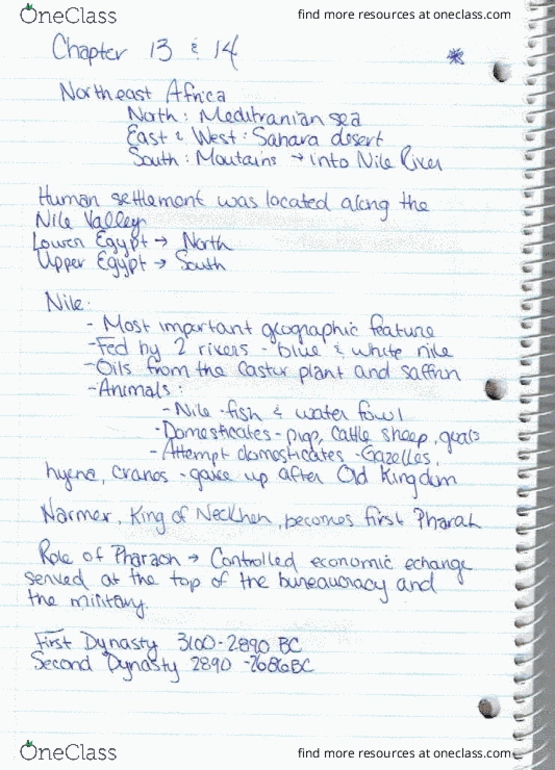 OneClass
find more resources at oneclass.com
Chapter 13 & 14
Northeast Africa
North: Meditranian sea
East & West: Sahara desert
South: Moutains → into Nile River
Human settlement was located along the
Nile Valley
Lower Egypt → North
Upper Egypt → South
Nile:
- Most important geographic feature
- Fed by 2 rivers - blue & white nile
- Oils from the Castur plant and saffrun
- Animals:
- Nile - fish & water fowl
- Domesticates - pigs, cattle sheep, goats
- Attempt domesticates - Gazelles,
hyena, cranes - gave up after Old Kingdom
Narmer, King of Neckhen, becomes first Pharah
Role of Pharaoh → Controlled economic echange
served at the top of the bureaucracy and
the military.
First Dynasty 3100-2890 BC
Second Dynasty 2890 -2686BC
OneClass
find more resources at oneclass.com